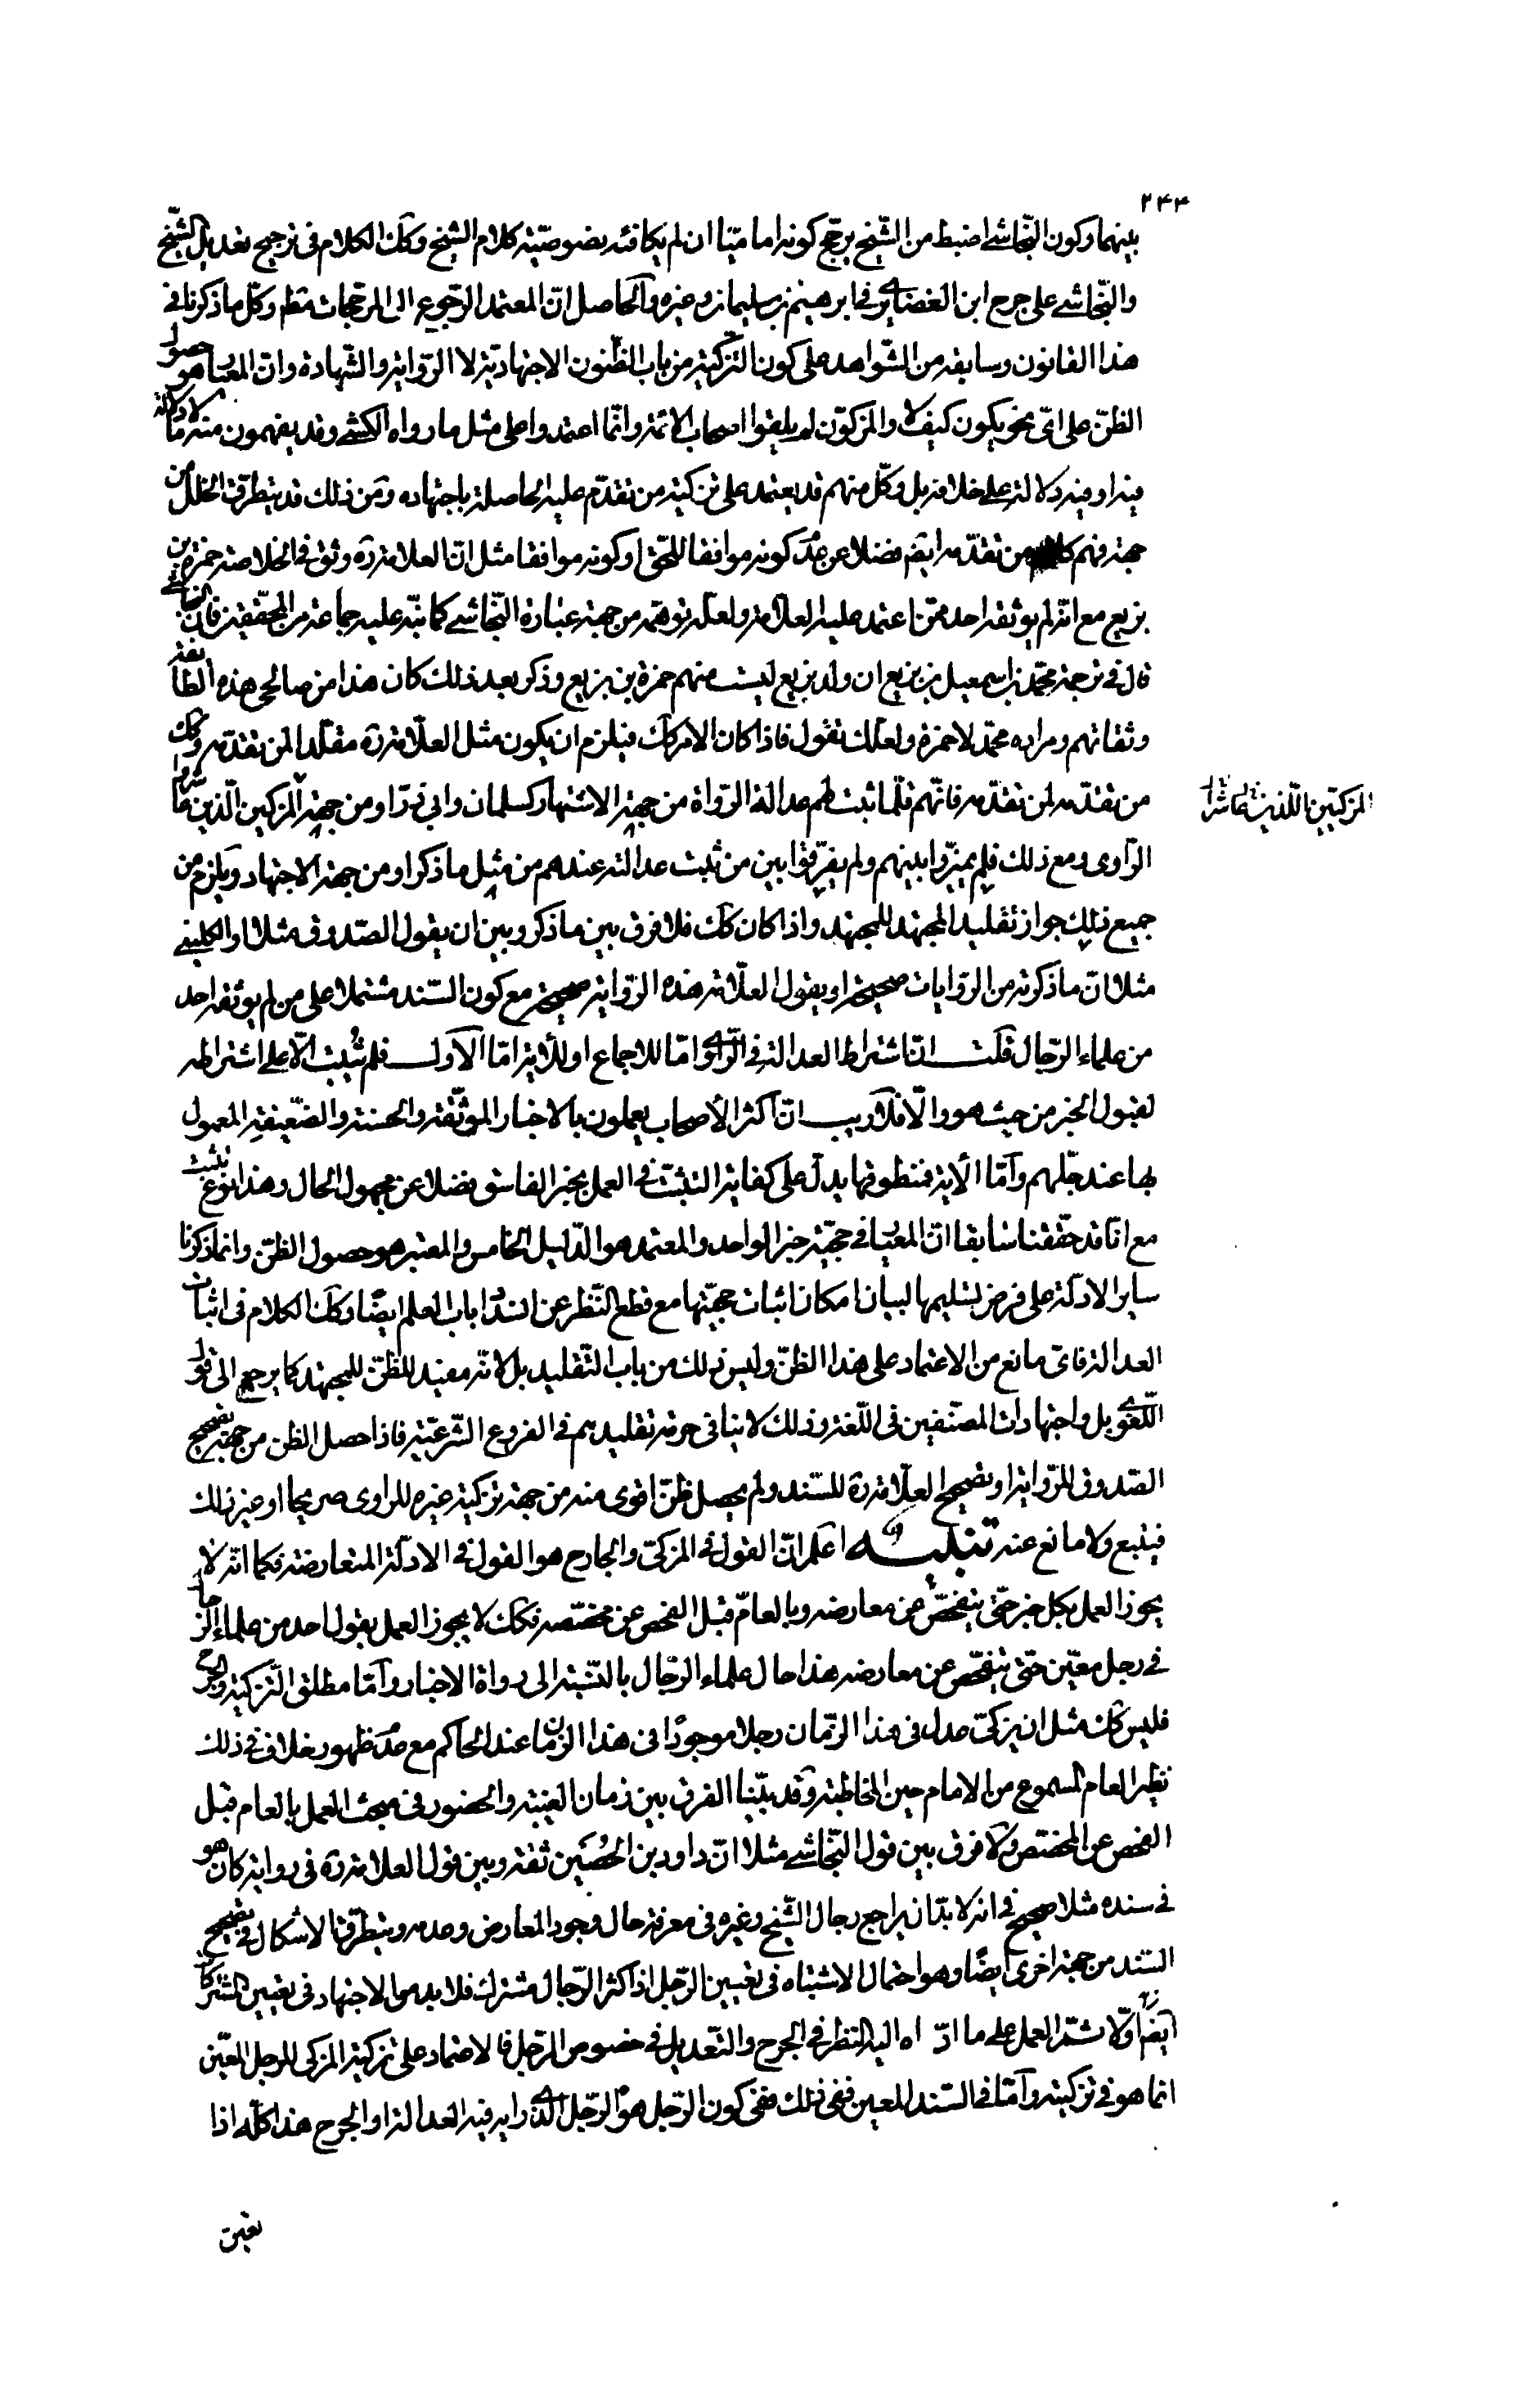 ۲۴۴
بينهما وكون النّجاشى اضبط من الشّيخ يرجّح كونه اماميّا ان لم يكافئه بضوصيّته كلام الشيخ وكك الكلام فى ترجيح تعديل الشّيخ
والنّجاشى على جرح ابن الغضايرى فى ابرهيم بن سليمان وغيره والحاصل انّ المعتمد الرّجوع الى المرجّحات مظم وكلّ ما ذكرنا فى
هذا القانون وسابقه من الشّواهد على كون التّزكية من باب الظّنون الاجتهاديّة لا الرّواية والشّهادة وانّ المعيار هو حصول
الظنّ على اىّ نحو يكون كيف لا والمزكّون لم يلقوا اصحاب الائمّة وانّما اعتمدوا على مثل ما رواه الكشى وقد يفهمون منه ما لا دلالة
فيه او فيه دلالة على خلافه بل وكلّ منهم قد يعتمد على تزكية من تقدّم عليه الحاصلة باجتهاده ومن ذلك قد يتطرّق الخلل من
جهة فهم كلام من تقدّمه ايضم فضلا عن عدم كونه موافقا للحقّ او كونه موافقا مثل انّ العلامة ره وثق فى الخلاصة حمزة بن
بزيع مع انّه لم يوثقه احد ممّن اعتمد عليه العلامة ولعلّه توهّمه من جهة عبارة النّجاشى كما نبّه عليه جماعة من المحقّقين فانّ النجاشى
قال فى ترجمة محمّد بن اسمعيل بن بزيع ان ولد بزيع بيت منهم حمزة بن بزيع وذكر بعد ذلك كان هذا من صالحى هذه الطّايفة
وثقاتهم ومراده محمّد لا حمزة ولعلّك تقول فاذا كان الامر كك فيلزم ان يكون مثل العلّامة ره مقلّدا لمن تقدّمه وكك
من تقدّمه لمن تقدّمه فانّهم قلّما ثبت لهم عدالة الرّواة من جهة الاشتهار كسلمان وابى ذرّ او من جهة المزكين الّذين عاشروا
المزكيّين اللّذين عاشرا
الرّاوى ومع ذلك فلم يميّزوا بينهم ولم يفرّقوا بين من ثبت عدالته عندهم من مثل ما ذكر او من جهة الاجتهاد ويلزم من
جميع ذلك جواز تقليد المجتهد للمجتهد واذا كان كك فلا فرق بين ما ذكر وبين ان يقول الصّدوق مثلا او الكلينى
مثلا انّ ما ذكرته من الرّوايات صحيحة او يقول العلّامة هذه الرّواية صحيحة مع كون السّند مشتملا على من لم يوثقه احد
من علماء الرّجال قلت انّ اشتراط العدالة فى الرّاوى امّا للاجماع او للآية امّا الاوّل فلم يثبت الّا على اشتراطه
لقبول الخبر من حيث هو والّا فلا ريب انّ اكثر الأصحاب يعملون بالاخبار الموثّقة والحسنة والضّعيفة المعمول
بها عند جلّهم وامّا الآية فمنطوقها يدلّ على كفاية التثبّت فى العمل بخبر الفاسق فضلا عن مجهول الحال وهذا نوع تثبّت
مع انّا قد حقّقنا سابقا انّ المعيار فى حجيّة خبر الواحد والمعتمد هو الدّليل الخامس والمعتبر هو حصول الظنّ وانما ذكرنا
ساير الادلّة على فرض تسليمها لبيان امكان اثبات حجيّتها مع قطع النّظر عن انسداد باب العلم ايضًا وكك الكلام فى اثبات
العدالة فاىّ مانع من الاعتماد على هذا الظنّ وليس ذلك من باب التّقليد بل لانّه مفيد للظنّ للمجتهد كما يرجع الى قول
اللّغوى بل واجتهادات المصنّفين فى اللّغة وذلك لا ينافى حرمة تقليدهم فى الفروع الشّرعيّة فاذا حصل الظن من جهة تصحيح
الصّدوق للرّواية او تصحيح العلّامة ره للسّند ولم يحصل ظنّ اقوى منه من جهة تزكية غيره للراوى صريحا او غير ذلك
فيتّبع ولا مانع عنه تنبيه اعلم انّ القول فى المزكىّ والجارح هو القول فى الادلّة المتعارضة فكما انّه لا
يجوز العمل بكلّ خبر حتّى يتفحّص عن معارضه وبالعامّ قبل الفحص عن مخصّصه فكك لا يجوز العمل بقول احد من علماء الرّجال
فى رجل معيّن حتّى يتفحّص عن معارضه هذا حال علماء الرّجال بالنّسبة الى رواة الاخبار وامّا مطلق التّزكية والجرح
فليس كك مثل ان يزكىّ عدل فى هذا الزّمان رجلا موجودًا فى هذا الزّمان عند الحاكم مع عدم ظهور خلاف فى ذلك
نظير العام المسموع من الامام حين المخاطبة وقد بيّنا الفرق بين زمان الغيبة والحضور فى مبحث العمل بالعام قبل
الفحص عن المخصّص ولا فرق بين قول النّجاشى مثلا انّ داود بن الحُصَين ثقة وبين قول العلامة ره فى رواية كان هو
فى سنده مثلا صحيح فى انّه لا بدّ ان يراجع رجال الشّيخ وغيره فى معرفة حال وجود المعارض وعدمه ويتطرّق الاشكال فى تصحيح
السّند من جهة اخرى ايضًا وهو احتمال الاشتباه فى تعيين الرّجل اذ اكثر الرّجال مشترك فلا بد من الاجتهاد فى تعيين المشتركات
ايضم اوّلا ثمّ العمل على ما ادّاه اليه النظر فى الجرح والتّعديل فى خصوص الرّجل فالاعتماد على تزكية المزكى للرجل المعيّن
انما هو فى تزكيته وامّا فى السّند المعين ففى ذلك ففى كون الرّجل هو الرّجل الّذى رايه فيه العدالة او الجرح هذا كلّه اذا
تعيّن